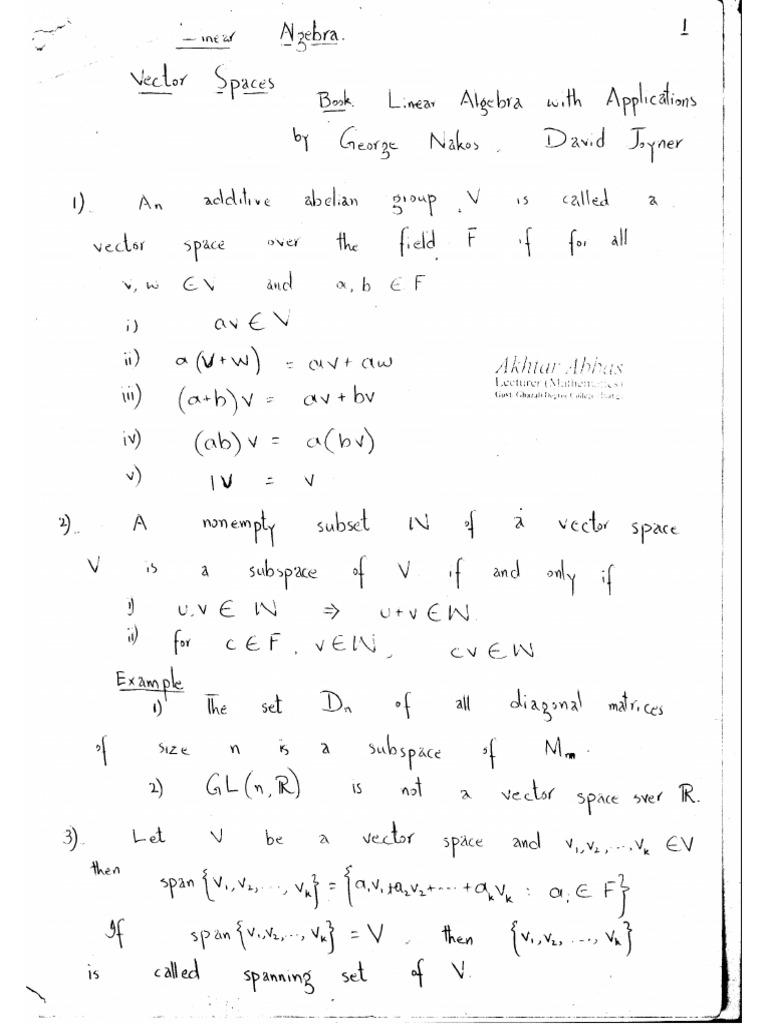 Linear Algebra. 1
Vector Spaces
Book. Linear Algebra with Applications
by George Nakos, David Joyner
1). An additive abelian group V is called a
vector space over the field F if for all
v, w ∈ V and a, b ∈ F
i) av ∈ V
ii) a(v+w) = av + aw
iii) (a+b)v = av + bv
iv) (ab)v = a(bv)
v) 1v = v
Akhtar Abbas
Lecturer (Mathematics)
Govt. Ghazali Degree College
2). A nonempty subset W of a vector space
V is a subspace of V if and only if
i) u, v ∈ W ⇒ u+v ∈ W
ii) for c ∈ F, v ∈ W, cv ∈ W
Example
1) The set Dn of all diagonal matrices
of size n is a subspace of Mnn.
2) GL(n, ℝ) is not a vector space over ℝ.
3). Let V be a vector space and v₁, v₂, ..., vₖ ∈ V
then
span {v₁, v₂, ..., vₖ} = {a₁v₁+a₂v₂+----+aₖvₖ : aᵢ ∈ F}
If span {v₁, v₂, .., vₖ} = V, then {v₁, v₂, ..., vₖ}
is called spanning set of V.